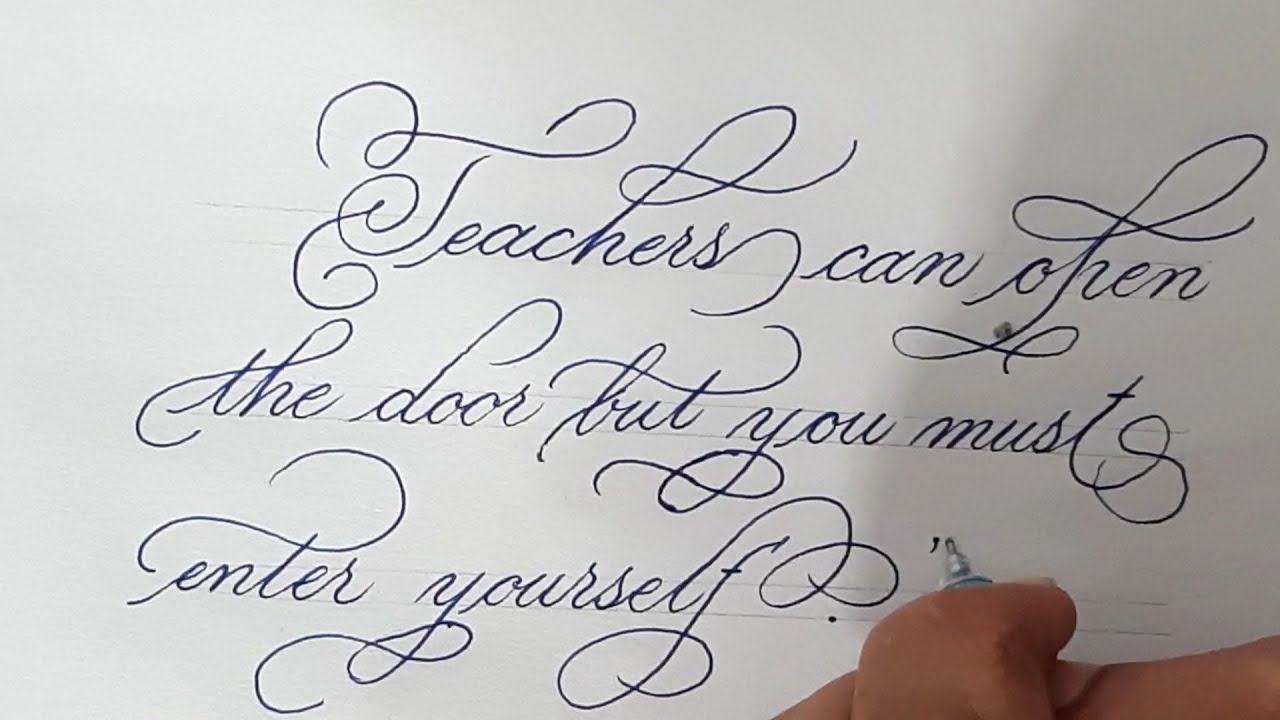 Teachers can open
the door but you must
enter yourself."